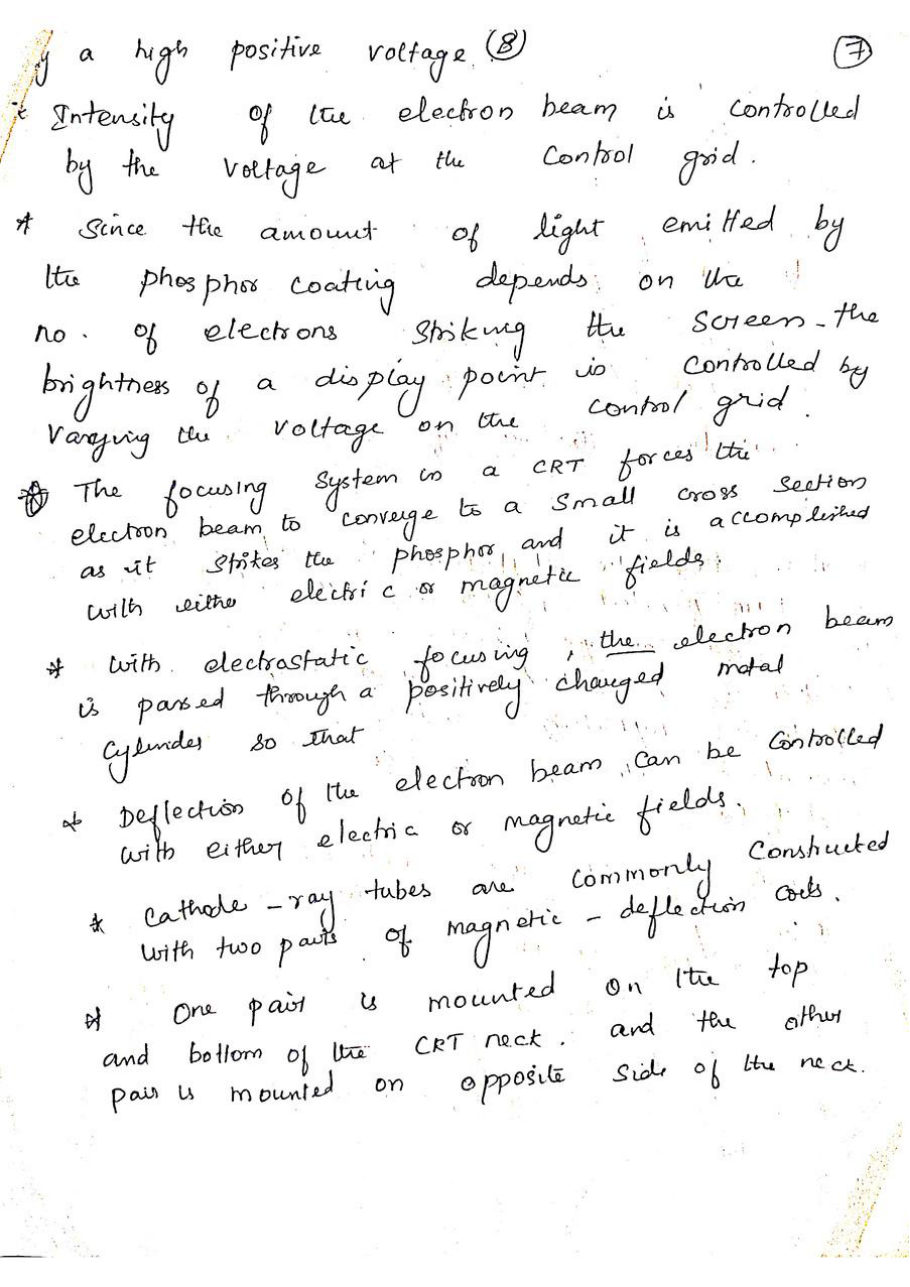 y a high positive voltage. (8) (7)
* Intensity of the electron beam is controlled
by the voltage at the control grid.
* Since the amount of light emitted by
the phosphor coating depends on the
no. of electrons striking the screen - the
brightness of a display point is controlled by
varying the voltage on the control grid.
* The focusing system in a CRT forces the
electron beam to converge to a small cross section
as it strikes the phosphor, and it is accomplished
with either electric or magnetic fields.
* with electrostatic focusing, the electron beam
is passed through a positively charged metal
cylinder so that
* Deflection of the electron beam can be controlled
with either electric or magnetic fields.
* Cathode-ray tubes are commonly constructed
with two pairs of magnetic - deflection coils.
* One pair is mounted on the top
and bottom of the CRT neck. and the other
pair is mounted on opposite side of the neck.